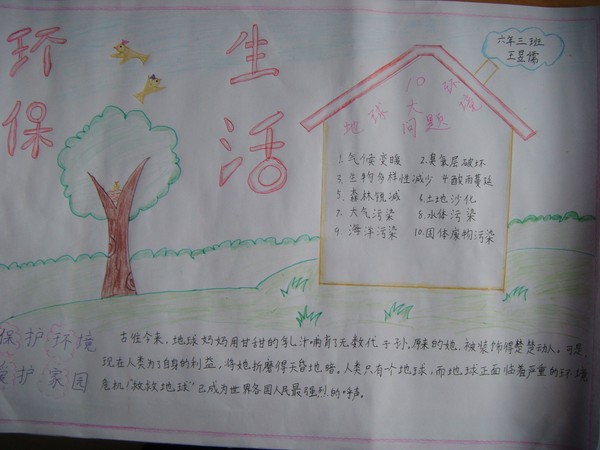 环保
生活
六年三班
王昱儒
地球10大环境问题
1. 气候变暖 2. 臭氧层破坏
3. 生物多样性减少 4. 酸雨蔓延
5. 森林锐减 6. 土地沙化
7. 大气污染 8. 水体污染
9. 海洋污染 10. 固体废物污染
保护环境
爱护家园
古往今来,地球妈妈用甘甜的乳汁哺育了无数代子孙。原来的她,被装饰得楚楚动人。可是
现在人类为了自身的利益,将她折磨得天昏地暗。人类只有个地球,而地球正面临着严重的环境
危机!"救救地球"已成为世界各国人民最强烈的呼声。